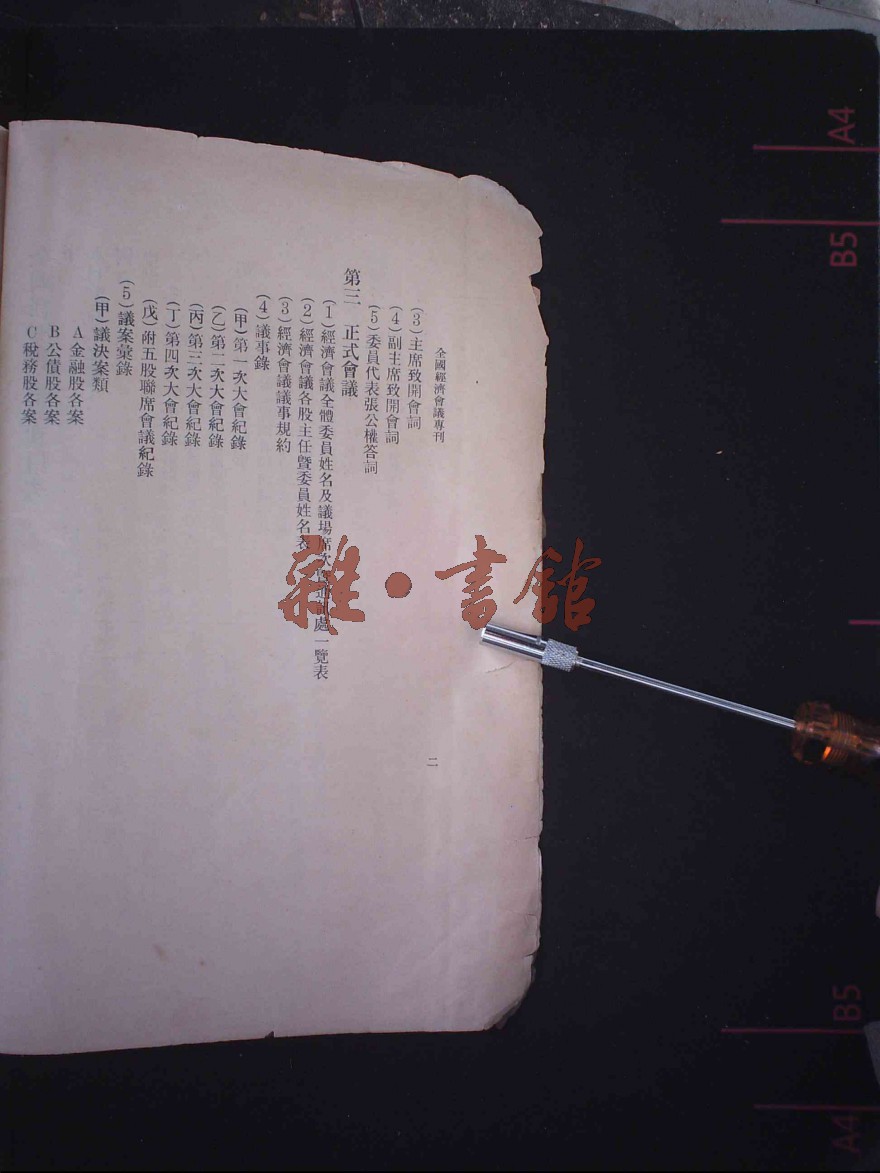 全國經濟會議專刊
(3)主席致開會詞
(4)副主席致開會詞
(5)委員代表張公權答詞
第三 正式會議
(1)經濟會議全體委員姓名及議場席次 處一覽表
(2)經濟會議各股主任暨委員姓名表
(3)經濟會議議事規約
(4)議事錄
(甲)第一次大會紀錄
(乙)第二次大會紀錄
(丙)第三次大會紀錄
(丁)第四次大會紀錄
(戊)附五股聯席會議紀錄
(5)議案彙錄
(甲)議決案類
A金融股各案
B公債股各案
C稅務股各案
二
雜·書館
A4
B5
B5
A4